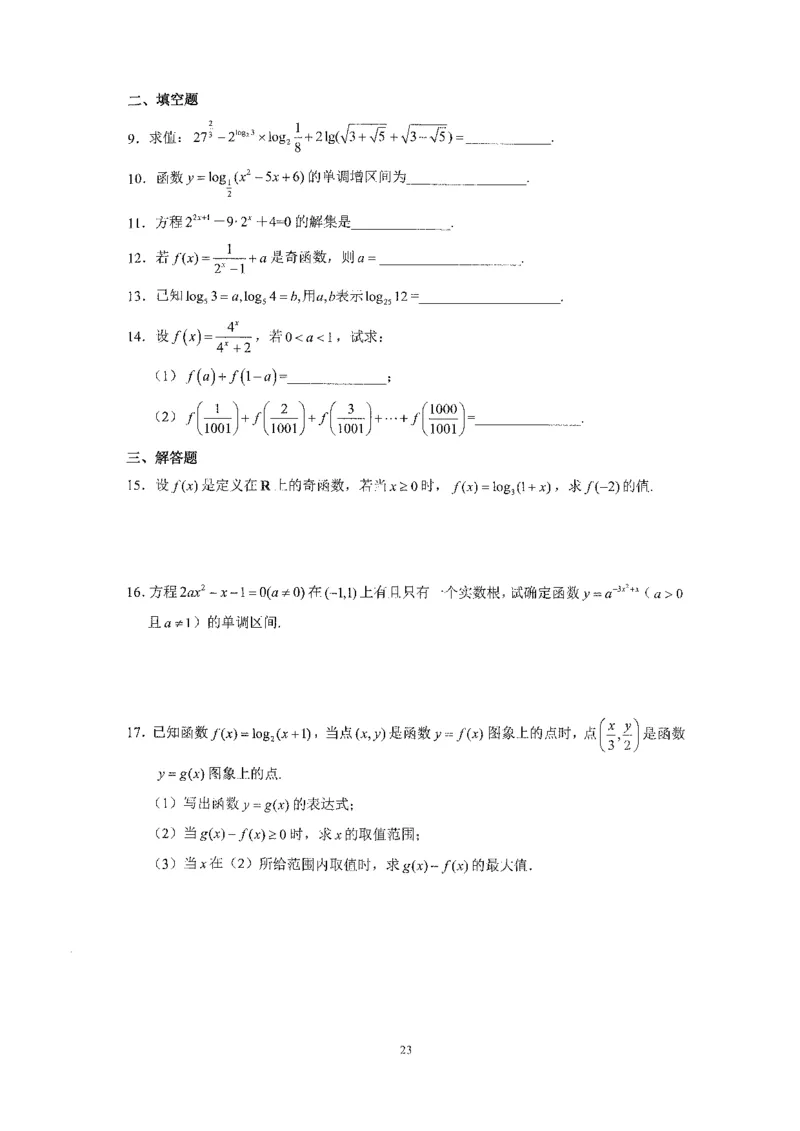 二、填空题
9．求值：27^{\frac{2}{3}}-2^{\log_2 3}×\log_2\frac{1}{8}+2\lg(\sqrt{3+\sqrt{5}}+\sqrt{3-\sqrt{5}})=____________.
10．函数y=\log_{\frac{1}{2}}(x^2-5x+6)的单调增区间为________________.
11．方程2^{2x+1}－9·2^x＋4=0的解集是______________.
12．若f(x)=\frac{1}{2^x-1}+a是奇函数，则a=____________________.
13．已知\log_5 3=a,\log_5 4=b,用a,b表示\log_{25}12=____________________.
14．设f(x)=\frac{4^x}{4^x+2}，若0<a<1，试求：
（1）f(a)+f(1-a)=______________；
（2）f(\frac{1}{1001})+f(\frac{2}{1001})+f(\frac{3}{1001})+⋯+f(\frac{1000}{1001})=_______________.
三、解答题
15．设f(x)是定义在R上的奇函数，若当x≥0时，f(x)=\log_3(1+x)，求f(-2)的值.
16．方程2ax^2-x-1=0(a≠0)在(-1,1)上有且只有一个实数根，试确定函数y=a^{-3x^2+x}（a>0
且a≠1）的单调区间.
17．已知函数f(x)=\log_2(x+1)，当点(x,y)是函数y=f(x)图象上的点时，点(\frac{x}{3},\frac{y}{2})是函数
y=g(x)图象上的点.
（1）写出函数y=g(x)的表达式；
（2）当g(x)-f(x)≥0时，求x的取值范围；
（3）当x在（2）所给范围内取值时，求g(x)-f(x)的最大值．
23